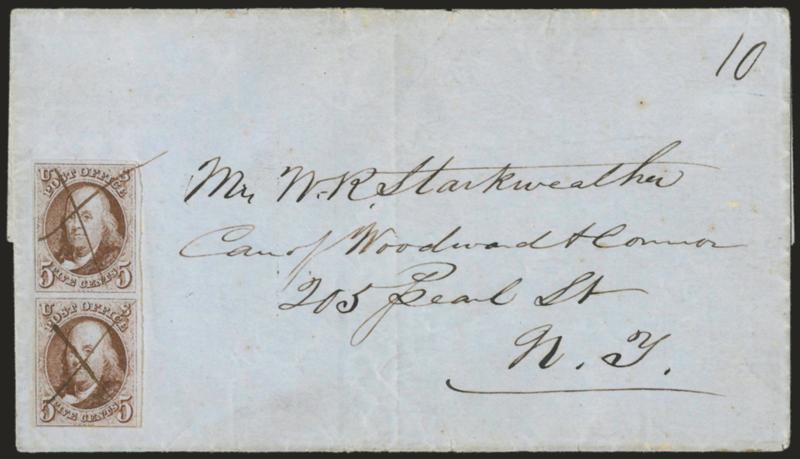 10
U S
POST OFFICE
5 FIVE CENTS 5
U S
POST OFFICE
5 FIVE CENTS 5
Mr W. R. Starkweather
Care of Woodward & Connor
205 Pearl St
N. Y.